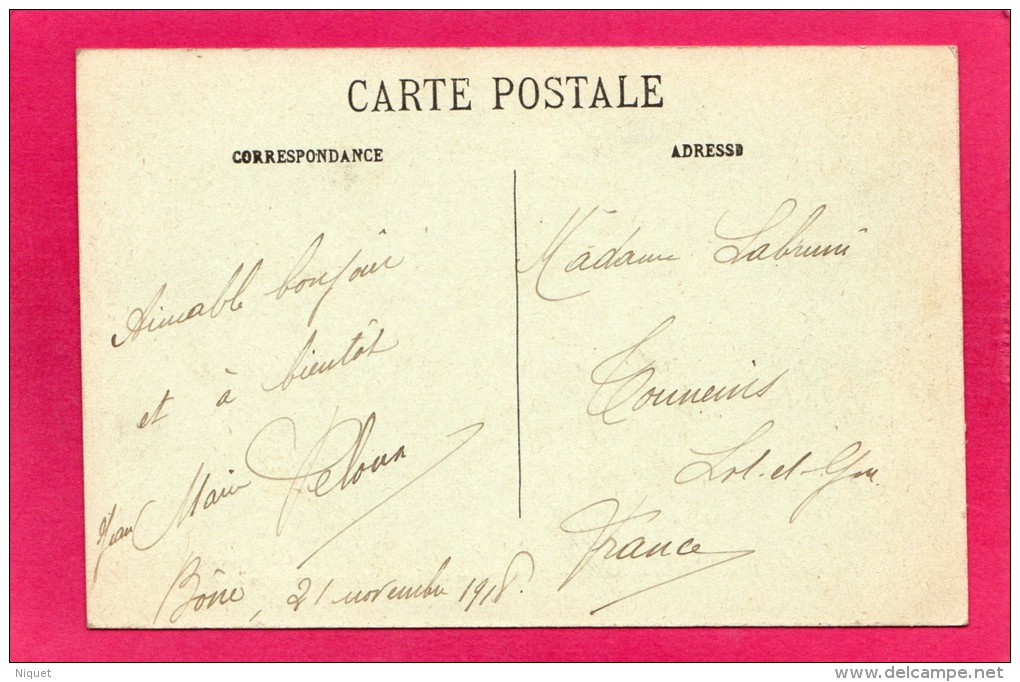 CARTE POSTALE
CORRESPONDANCE
ADRESSE
Aimable bonjour
et à bientôt
Jean Marie
Bône, 21 novembre 1918.
Madame Labrune
Tonneins
Lot-et-Gne
France
Niquet
www.delcampe.net